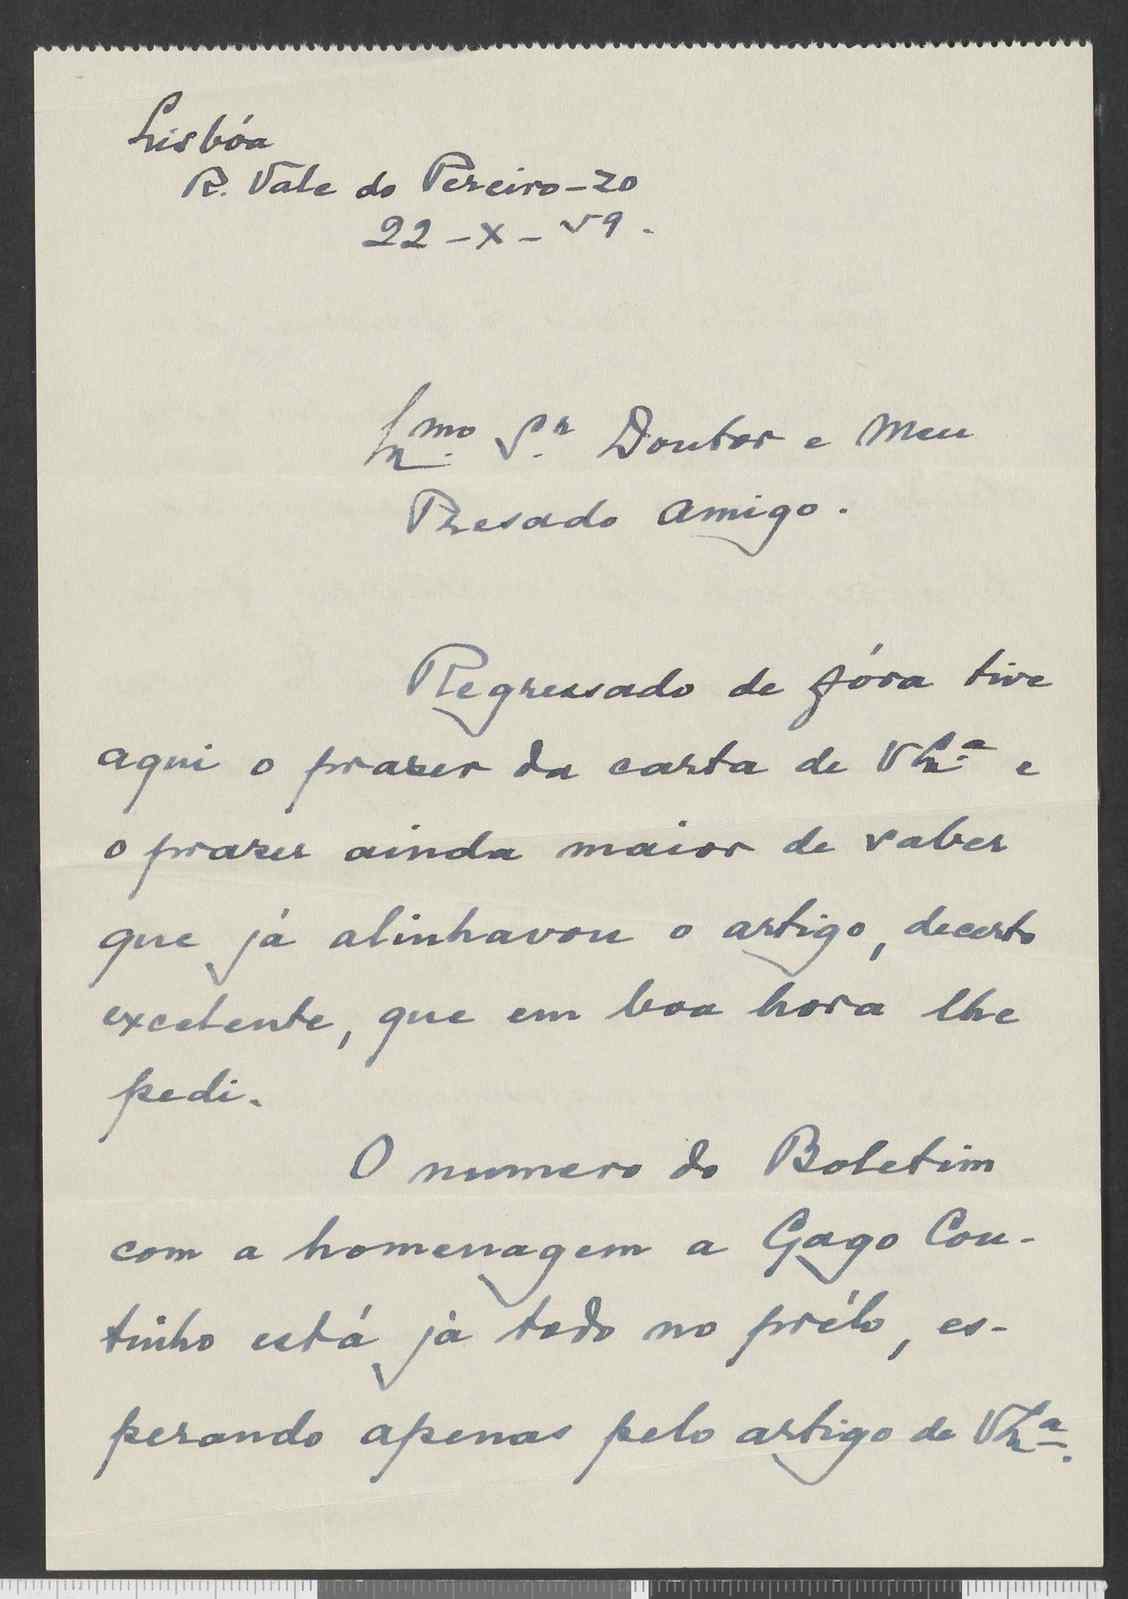 Lisbôa
R. Vale do Pereiro - 20
22 - X - 59.
Exmo. Sr. Doutor e Meu
Presado Amigo.
Regressado de fóra tive
aqui o prazer da carta de V Exª. e
o prazer ainda maior de saber
que já alinhavou o artigo, decerto
excelente, que em boa hora lhe
pedi.
O numero do Boletim
com a homenagem a Gago Cou-
tinho está já todo no prélo, es-
perando apenas pelo artigo de V Exª.